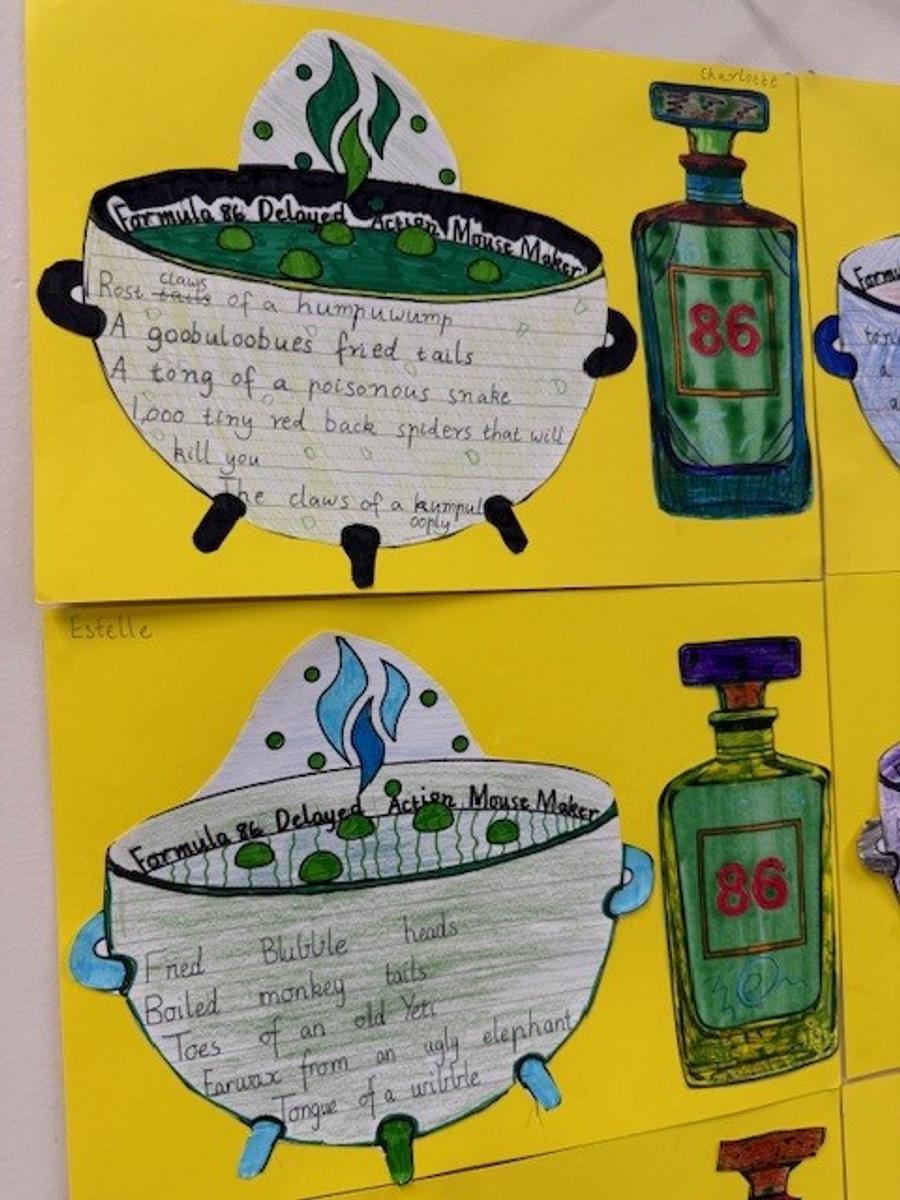 Charlotte
Formula 86 Delayed Action Mouse Maker
claws
Rost tails of a humpuwump
A goobuloobues fried tails
A tong of a poisonous snake
1,000 tiny red back spiders that will
kill you
The claws of a kumpul
ooply
86
Formu
a
a
Estelle
Formula 86 Delayed Action Mouse Maker
Fried Blubble heads
Boiled monkey tails
Toes of an old Yeti
Earwax from an ugly elephant
Tongue of a wibble
86